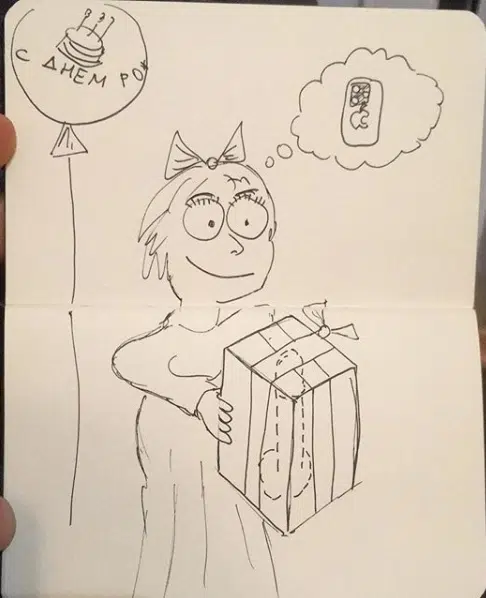 С ДНЕМ РО